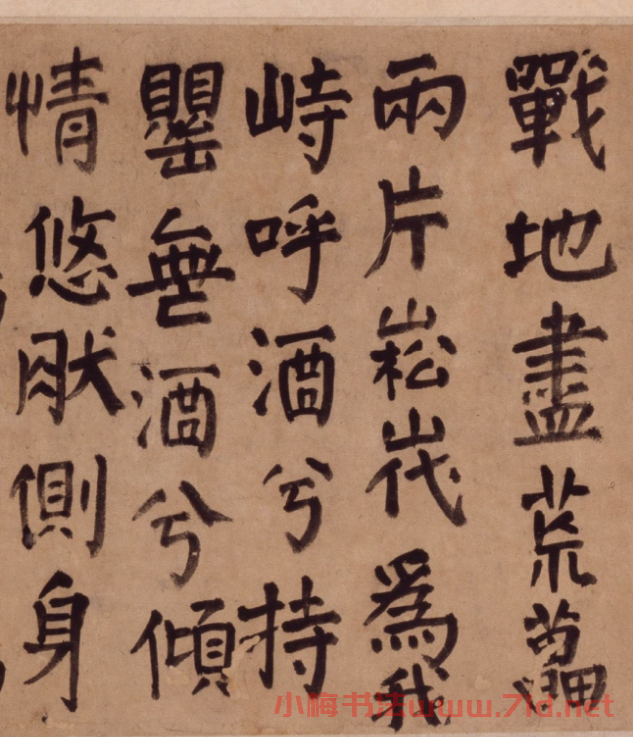 戰地盡荒
兩片崧岱爲我
峙呼酒兮持
罌無酒兮傾
情悠肰側身
小梅书法www.7id.net